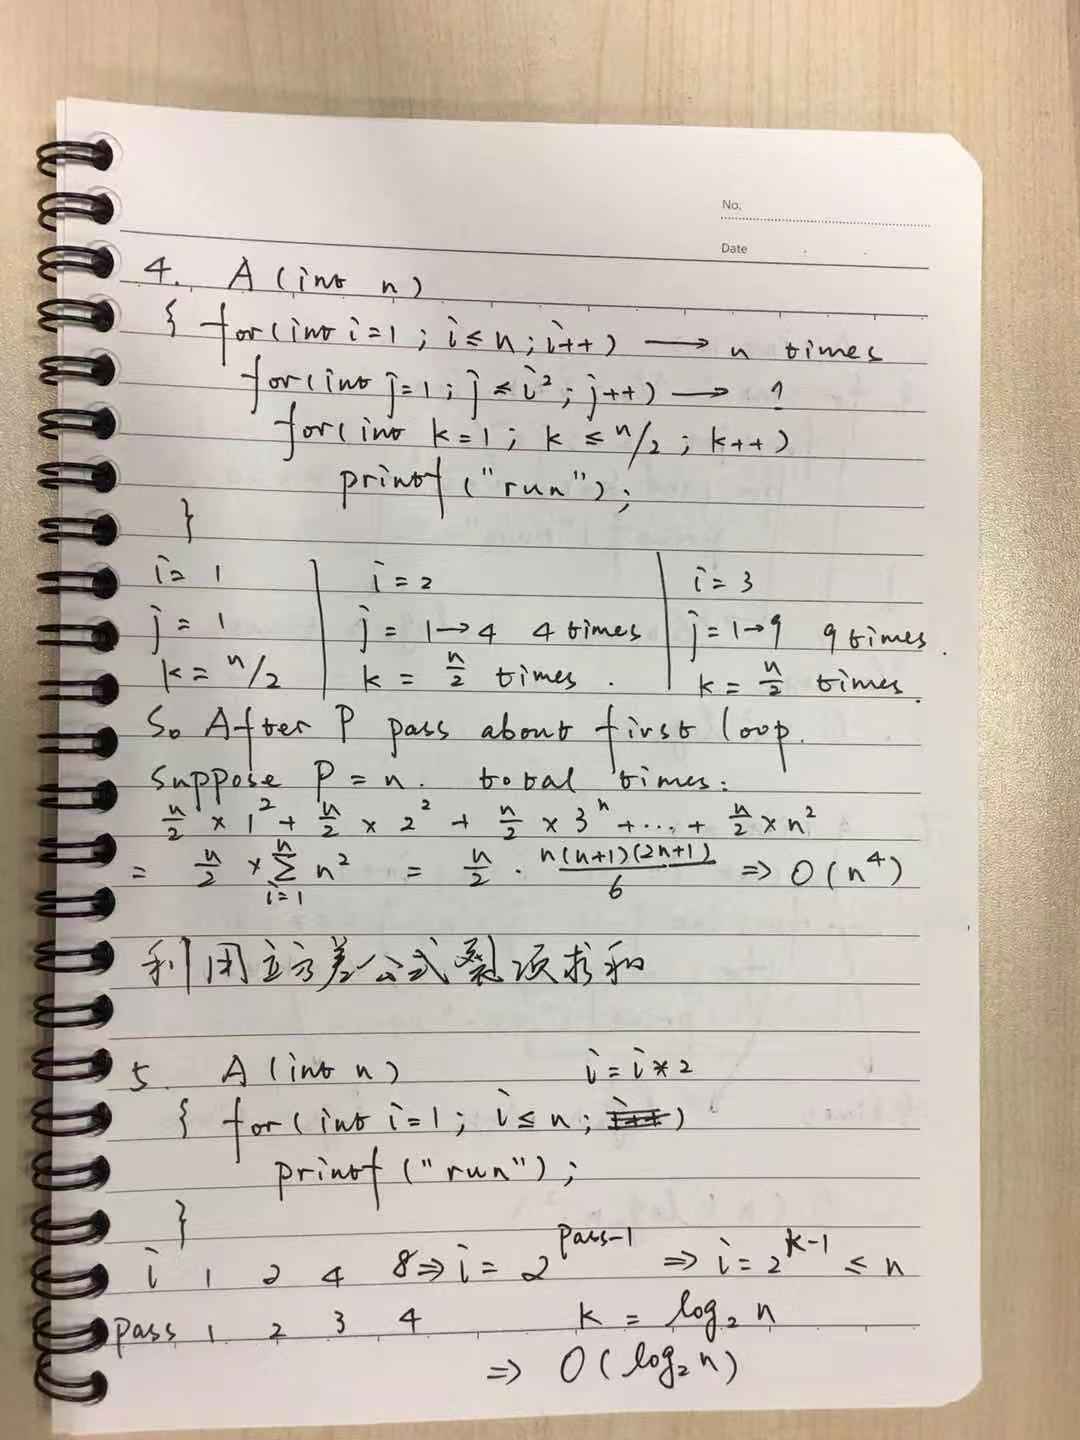 No.
Date
4. A (int n)
{ for(int i=1 ; i≤n ; i++) → n times
for(int j=1 ; j≤i² ; j++) → ?
for(int k=1 ; k≤n/2 ; k++)
printf ("run");
}
i= 1 | i=2 | i=3
j = 1 | j = 1→4 4 times | j=1→9 9 times.
k= n/2 | k = n/2 times . | k = n/2 times.
So After P pass about first loop.
Suppose P=n. total times:
n/2 × 1² + n/2 × 2² + n/2 × 3ⁿ +...+ n/2 × n²
= n/2 × ∑_{i=1}^{n} n² = n/2 · n(n+1)(2n+1)/6 ⇒ O(n⁴)
利用立方差公式裂项求和
5. A (int n) i=i*2
{ for(int i=1; i≤n; i++)
printf ("run");
}
i 1 2 4 8 ⇒ i = 2^{pass-1} ⇒ i=2^{k-1} ≤ n
pass 1 2 3 4 k = log₂ n
⇒ O(log₂n)